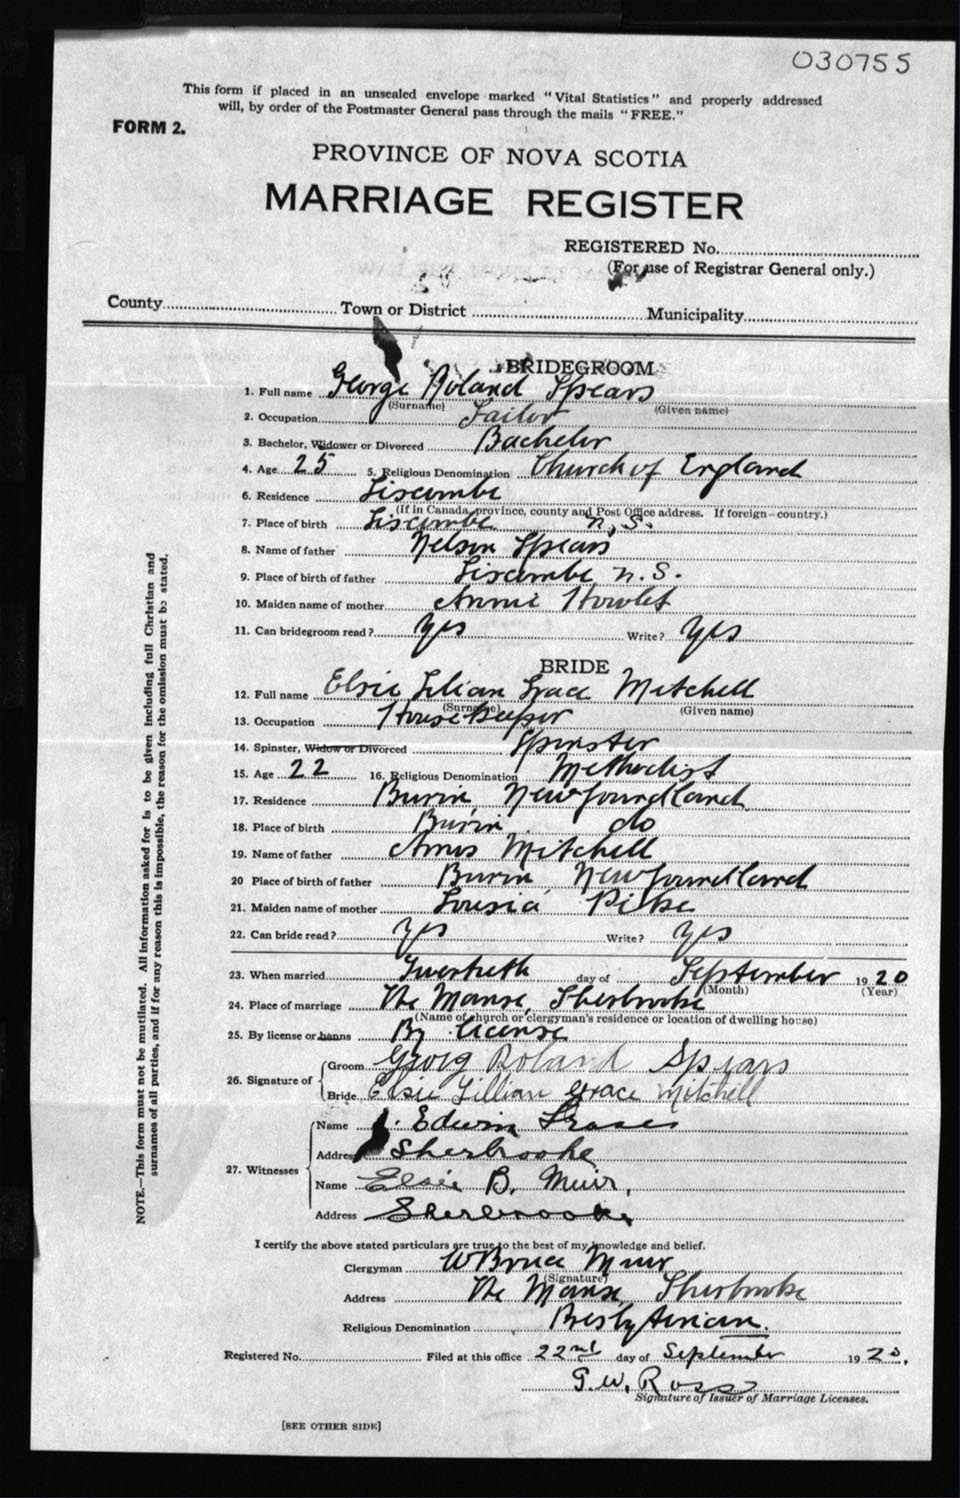 030755
This form if placed in an unsealed envelope marked "Vital Statistics" and properly addressed
will, by order of the Postmaster General pass through the mails "FREE."
FORM 2.
PROVINCE OF NOVA SCOTIA
MARRIAGE REGISTER
REGISTERED No.
(For use of Registrar General only.)
County Town or District Municipality
BRIDEGROOM
1. Full name George Roland Spears
(Surname) (Given name)
2. Occupation Sailor
3. Bachelor, Widower or Divorced Bachelor
4. Age 25 5. Religious Denomination Church of England
6. Residence Liscombe
(If in Canada, province, county and Post Office address. If foreign—country.)
7. Place of birth Liscombe N.S.
8. Name of father Nelson Spears
9. Place of birth of father Liscombe N.S.
10. Maiden name of mother Annie Howlet
11. Can bridegroom read? Yes Write? Yes
BRIDE
12. Full name Elsie Lilian Grace Mitchell
(Surname) (Given name)
13. Occupation HouseKeeper
14. Spinster, Widow or Divorced Spinster
15. Age 22 16. Religious Denomination Methodist
17. Residence Burin, Newfoundland
18. Place of birth Burin do
19. Name of father Amos Mitchell
20 Place of birth of father Burin Newfoundland
21. Maiden name of mother Lousia Pike
22. Can bride read? Yes Write? Yes
23. When married Twentieth day of September 1920
(Month) (Year)
24. Place of marriage The Manse, Sherbrooke
(Name of church or clergyman's residence or location of dwelling house)
25. By license or banns By license
26. Signature of
Groom Georg Roland Spears
Bride Elsie Lillian Grace Mitchell
27. Witnesses
Name Edwin Fraser
Address Sherbrooke
Name Elsie B. Muir,
Address Sherbrooke
I certify the above stated particulars are true to the best of my knowledge and belief.
Clergyman W Bruce Muir
(Signature)
Address The Manse, Sherbrooke
Religious Denomination Presbyterian.
Registered No. Filed at this office 22nd day of September 1920.
G. W. Ross
Signature of Issuer of Marriage Licenses.
[SEE OTHER SIDE]
NOTE.—This form must not be mutilated. All information asked for is to be given including full Christian and
surnames of all parties, and if for any reason this is impossible, the reason for the omission must be stated.